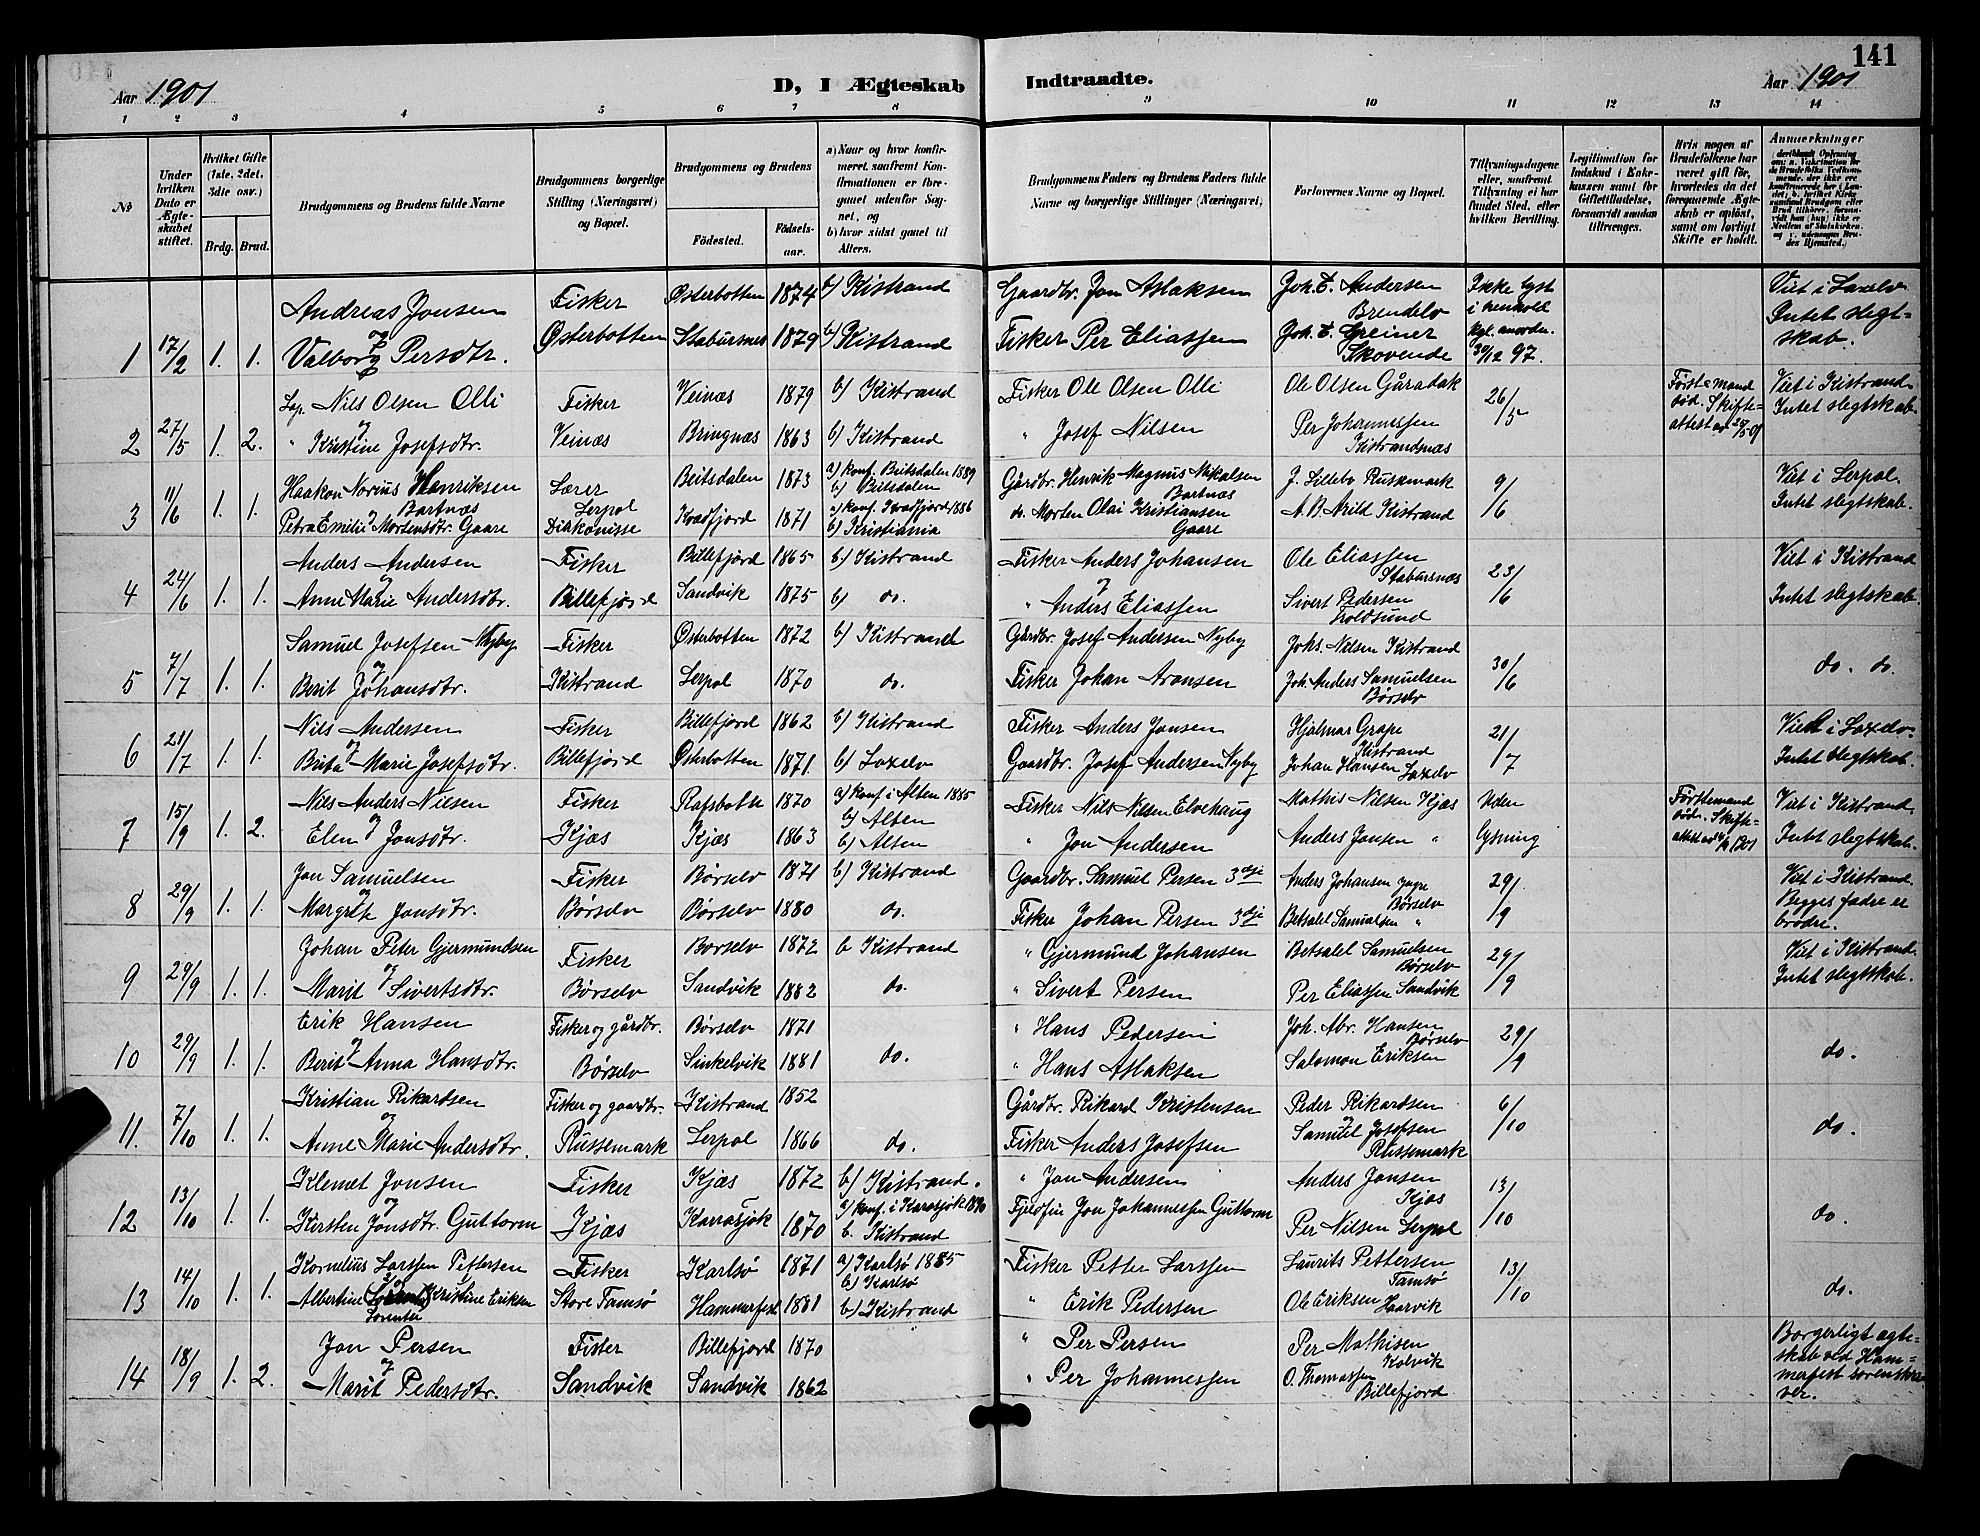 141
Aar 1901
D, I Ægteskab Indtraadte.
Aar 1901
1 2 3 4 5 6 7 8 9 10 11 12 13 14
No
Under hvilken Dato er Ægteskabet stiftet.
Hvilket Gifte (1ste, 2det, 3die osv.)
Brdg. Brud.
Brudgommens og Brudens fulde Navne
Brudgommens borgerlige Stilling (Næringsvei) og Bopæl.
Brudgommens og Brudens
Fødested. Fødselsaar.
a) Naar og hvor konfirmeret, saafremt Konfirmationen er foregaaet udenfor Sognet, og
b) hvor sidst gaaet til Alters.
Brudgommens Faders og Brudens Faders fulde Navne og borgerlige Stillinger (Næringsvei)
Forlovernes Navne og Bopæl.
Tillysningsdagene eller, saafremt Tillysning ei har fundet Sted, efter hvilken Bevilling.
Legitimation for Indskud i Enkekassen samt for Giftetilladelse, forsaavidt saadan tiltrænges.
Hvis nogen af Brudefolkene har været gift før, hvorledes da det foregaaende Ægteskab er opløst, samt om lovligt Skifte er holdt.
Anmerkninger
1 17/2 1. 1. Andreas Jonsen Fisker Østerbotten 1874 b) Kistrand Gaardbr. Jon Aslaksen Joh. E. Andersen Brendelv Ikke lyst i henhold kgl. anordn. 30/12 97. Viet i Laxelv
og Valborg Persdtr. Østerbotten Stabursnes 1879 b) Kistrand Fisker Per Eliassen Joh. E. Greiner Skovende Intet slegtskab.
2 27/5 1. 2. Lap. Nils Olsen Olli Fisker Veinæs 1879 b) Kistrand Fisker Ole Olsen Olli Ole Olsen Gåradak 26/5 Første mand død. Skifteattest av 20/5 01 Viet i Kistrand.
og " Kristine Josefsdtr. Veinæs Bringnæs 1863 b) Kistrand " Josef Nilsen Per Johannessen Kistrandsnæs Intet slegtskab.
3 11/6 1. 1. Haakon Norius Henriksen Bartnæs Lærer Beitsdalen 1873 a) konf. Beitsdalen 1889 b) Beitsdalen Gårdbr. Henrik Magnus Nikolsen Bartnæs J. Lillebo Russemark 9/6 Viet i Lerpol.
og Petra Emilie Mortensdtr. Gaare Lerpol Diakonisse Kvæfjord 1871 a) konf. Kvæfjord 1886 b) Kristiania do. Morten Olai Kristiansen Gaare A. B. Arild Kistrand Intet slegtskab.
4 24/6 1. 1. Anders Andersen Fisker Billefjord 1865 b) Kistrand Fisker Anders Johansen Ole Eliassen Stabursnæs 23/6 Viet i Kistrand
og Anne Marie Andersdtr. Billefjord Sandvik 1875 b) do. " Anders Eliassen Sivert Pedersen Coldsund Intet slegtskab.
5 7/7 1. 1. Samuel Josefsen Nyby Fisker Østerbotten 1872 b) Kistrand Gårdbr. Josef Andersen Nyby Johs. Nilsen Kistrand 30/6 do. do.
og Berit Johansdtr. Kistrand Lerpol 1870 do. Fisker Johan Aronsen Joh. Anders Samuelsen Børselv
6 21/7 1. 1. Nils Andersen Fisker Billefjord 1862 b) Kistrand Fisker Anders Jonsen Hjalmar Grape Kistrand 21/7 Viet i Laxelv.
og Brita Marie Josefsdtr. Billefjord Østerbotten 1871 b) Laxelv Gaardbr. Josef Andersen Nyby Johan Hansen Laxelv Intet slegtskab.
7 15/9 1. 2. Nils Anders Nilsen Fisker Rafsbotn 1870 a) konf. i Alten 1885 b) Alten Fisker Nils Nilsen Elvehaug Mathis Nilsen Kjæs Uden lysning Førstemand død. Skifteattest Viet i Kistrand.
og Elen Jonsdtr. Kjæs Kjæs 1863 b) Alten " Jon Andersen Anders Jonsen " Intet slegtskab.
8 29/9 1. 1. Jon Samuelsen Fisker Børselv 1871 b) Kistrand Gaardbr. Samuel Persen 3die Anders Johansen Børselv 29/9 Viet i Kistrand.
og Margrete Jonsdtr. Børselv Børselv 1880 do. Fisker Johan Persen 3die Betsalel Samuelsen " Begges fædre er brødre.
9 29/9 1. 1. Johan Peter Gjermundsen Fisker Børselv 1872 b Kistrand " Gjermund Johansen Betsalel Samuelsen Børselv 29/9 Viet i Kistrand.
og Marit Sivertsdtr. Børselv Sandvik 1882 do. " Sivert Persen Per Eliassen Sandvik Intet slegtskab.
10 29/9 1. 1. Erik Hansen Fisker og gårdbr. Børselv 1871 " Hans Pedersen Joh. Abr. Hansen Børselv 29/9 do.
og Berit Anna Hansdtr. Børselv Sinkelvik 1881 do. " Hans Aslaksen Salomon Eriksen
11. 7/10 1. 1. Kristian Rikardsen Fisker og gaardbr. Kistrand 1852 Gårdbr. Rikard Kristensen Peder Rikardsen 6/10 do.
og Anne Marie Andersdtr. Russemark Lerpol 1866 do. Fisker Anders Josefsen og Samuel Josefsen Russemark
12 13/10 1. 1. Klemet Jonsen Fisker Kjæs 1872 b) Kistrand. " Jon Andersen Anders Jonsen Kjæs 13/10 do.
og Kirsten Jonsdtr. Guttorm Kjæs Karrasjok 1870 a) konf. i Karasjok 1890 b. Kistrand Fjeldfin Jon Johannessen Guttorm Per Nilsen Lerpol
13 14/10 1. 1. Kornelius Larssen Pettersen Fisker Karlsø 1871 a) Karlsø 1885 b) Karlsø Fisker Petter Larssen Laurits Pettersen Tamsø 13/10 do.
og Albertine Lorentse Kristine Eriksen Store Tamsø Hammerfest 1881 b) Kistrand " Erik Pedersen Ole Eriksen Haarvik
14 18/9 1. 2. Jon Persen Fisker Billefjord 1870 " Per Persen Per Mathisen Kolvik Borgerligt ægteskab ved Hammerfest sorenskriver.
og Marit Pedersdtr. Sandvik Sandvik 1862 " Per Johannessen O. Thomassen Billefjord